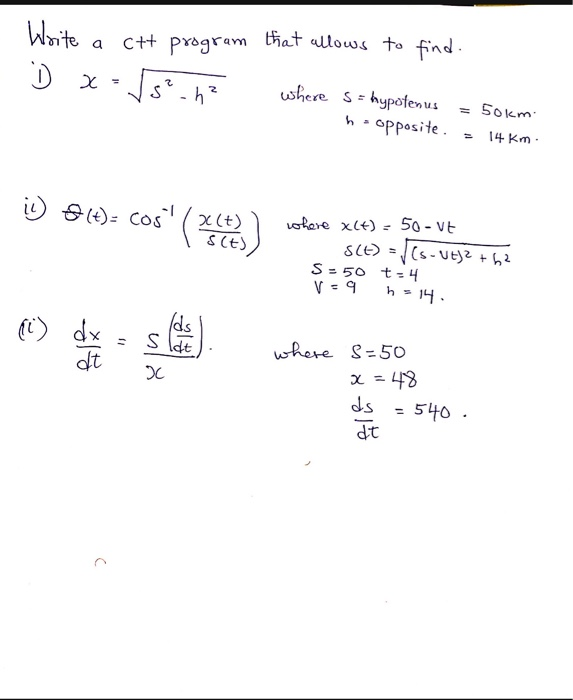 Write a c++ program that allows to find.
i) x = √s² - h² where s = hypotenus = 50km.
h = opposite. = 14 Km.
ii) θ(t) = cos⁻¹ (x(t)/s(t)) where x(t) = 50 - Vt
s(t) = √(s - Vt)² + h²
S = 50 t = 4
V = 9 h = 14.
(ii) dx/dt = s(ds/dt)/x. where S = 50
x = 48
ds/dt = 540.